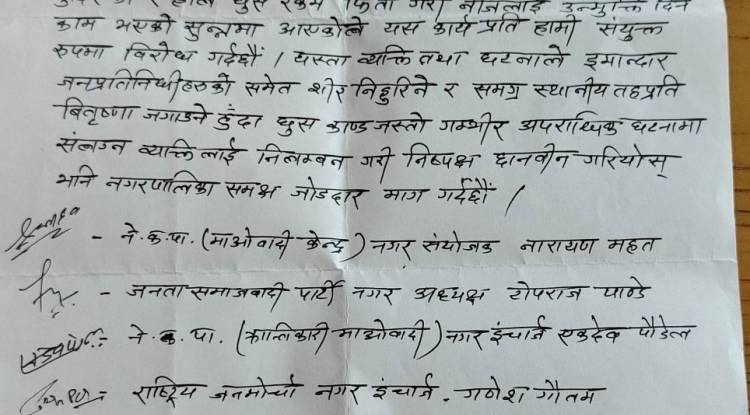 घुस रकम फिर्ता गरी निजलाई उन्मुक्ति दिने
काम भएको सुन्नमा आएकोले यस कार्य प्रति हामी संयुक्त
रुपमा विरोध गर्दछौं । यस्ता व्यक्ति तथा घटनाले इमान्दार
जनप्रतिनिधीहरुको समेत शीर निहुरिने र समग्र स्थानीय तहप्रति
बितृष्णा जगाउने हुँदा घुस काण्ड जस्तो गम्भीर अपराधिक घटनामा
संलग्न व्यक्तिलाई निलम्बन गरी निष्पक्ष छानवीन गरियोस्
भनि नगरपालिका समक्ष जोडदार माग गर्दछौं ।
- ने.क.पा. (माओवादी केन्द्र) नगर संयोजक नारायण महत
- जनता समाजवादी पार्टी नगर अध्यक्ष टोपराज पाण्डे
- ने.क.पा. (क्रान्तिकारी माओवादी) नगर इंचार्ज एकदेव पौडेल
राष्ट्रिय जनमोर्चा नगर इंचार्ज . गणेश गौतम